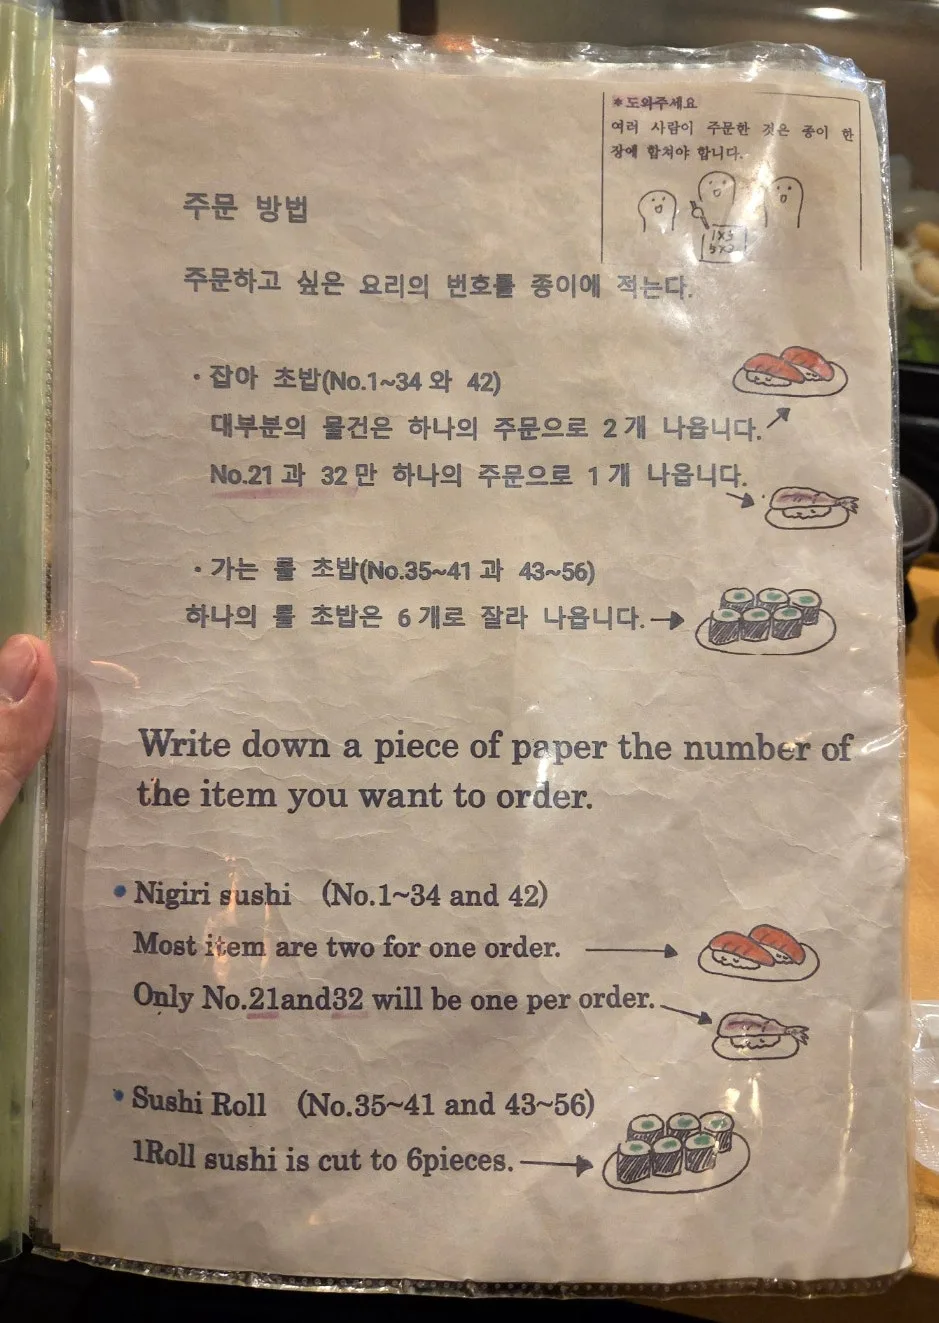 *도와주세요
여러 사람이 주문한 것은 종이 한
장에 합쳐야 합니다.
1×3
5×2
주문 방법
주문하고 싶은 요리의 번호를 종이에 적는다.
・잡아 초밥(No.1~34 와 42)
대부분의 물건은 하나의 주문으로 2 개 나옵니다.
No.21 과 32 만 하나의 주문으로 1 개 나옵니다.
・가는 롤 초밥(No.35~41 과 43~56)
하나의 롤 초밥은 6 개로 잘라 나옵니다.
Write down a piece of paper the number of
the item you want to order.
• Nigiri sushi (No.1~34 and 42)
Most item are two for one order.
Only No.21and32 will be one per order.
• Sushi Roll (No.35~41 and 43~56)
1Roll sushi is cut to 6pieces.